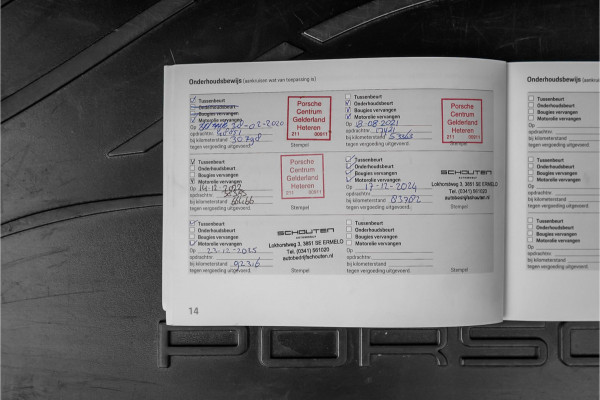 Onderhoudsbewijs (aankruisen wat van toepassing is)
Tussenbeurt
Onderhoudsbeurt
Bougies vervangen
Motorolie vervangen
Op
opdrachtnr.
bij kilometerstand
tegen vergoeding uitgevoerd:
Porsche
Centrum
Gelderland
Heteren
211 00011
Stempel
Tussenbeurt
Onderhoudsbeurt
Bougies vervangen
Motorolie vervangen
Op 18.08.2021
opdrachtnr.
bij kilometerstand
tegen vergoeding uitgevoerd:
Porsche
Centrum
Gelderland
Heteren
211 00011
Stempel
Tussenbeurt
Onderhoudsbeurt
Bougies vervangen
Motorolie vervangen
Op
opdrachtnr.
bij kilometerstand
tegen vergoeding uitgevoerd:
Porsche
Centrum
Gelderland
Heteren
211 00011
Stempel
Tussenbeurt
Onderhoudsbeurt
Bougies vervangen
Motorolie vervangen
Op 17-12-2024
opdrachtnr.
bij kilometerstand 83782
tegen vergoeding uitgevoerd:
SCHOUTEN
Lokhorstweg 3, 3851 SE ERMELO
Tel. (0341) 551020
autobedrijfschouten.nl
Stempel
Tussenbeurt
Onderhoudsbeurt
Bougies vervangen
Motorolie vervangen
Op 23-12-2025
opdrachtnr.
bij kilometerstand 92316
tegen vergoeding uitgevoerd:
SCHOUTEN
Lokhorstweg 3, 3851 SE ERMELO
Tel. (0341) 551020
autobedrijfschouten.nl
Stempel
Tussenbeurt
Onderhoudsbeurt
Bougies vervangen
Motorolie vervangen
Op
opdrachtnr.
bij kilometerstand
tegen vergoeding uitgevoerd:
Stempel
14
Onderhoudsbewijs (aankruisen
Tussenbeurt
Onderhoudsbeurt
Bougies vervangen
Motorolie vervangen
Op
opdrachtnr.
bij kilometerstand
tegen vergoeding uitgevoerd
Tussenbeurt
Onderhoudsbeurt
Bougies vervangen
Motorolie vervangen
Op
opdrachtnr.
bij kilometerstand
tegen vergoeding uitgevoerd
Tussenbeurt
Onderhoudsbeurt
Bougies vervangen
Motorolie vervangen
Op
opdrachtnr.
bij kilometerstand
tegen vergoeding uitgevoerd
PORSC